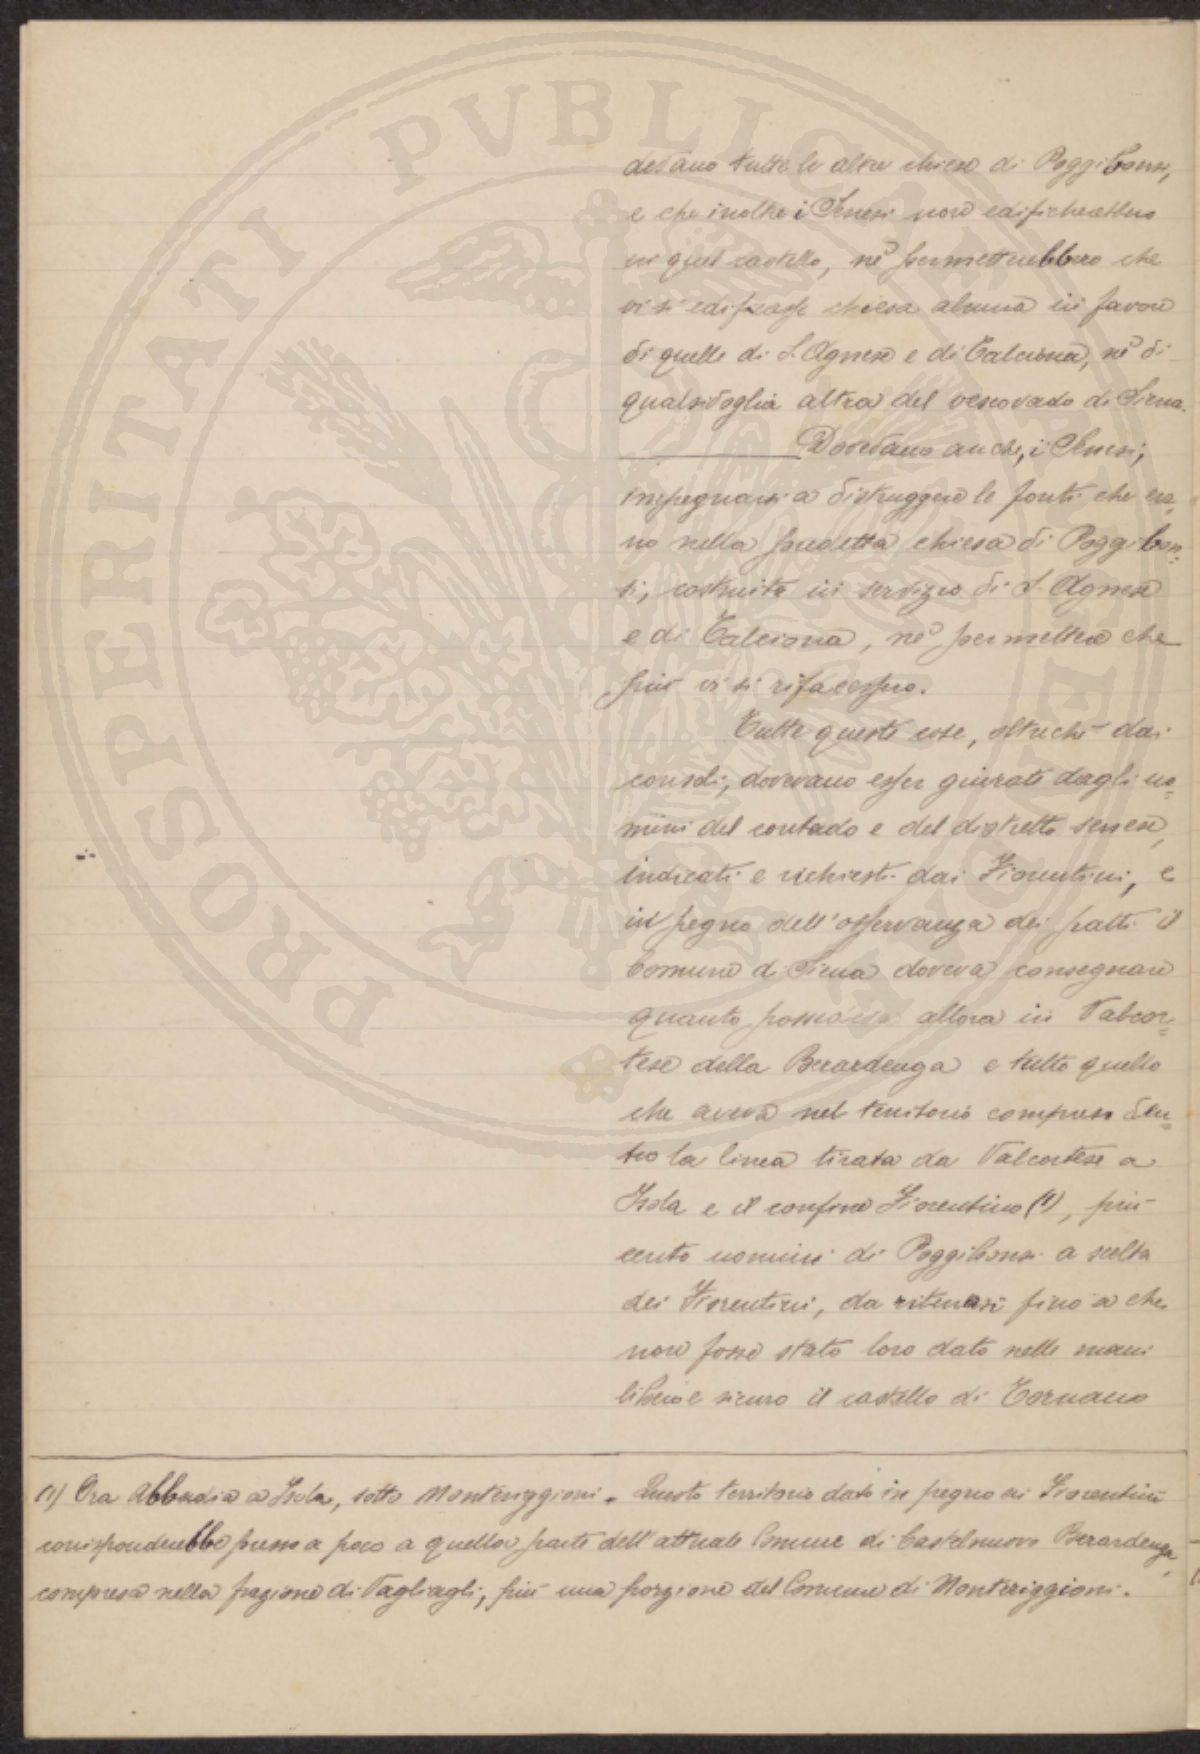 PROSPERITATI PVBLICAE
devano tutte le altre chiese di Poggibonsi,
e che inoltre i Senesi non edificherebbero
in quel castello, nè permetterebbero che
vi si edificasse chiesa alcuna in favore
di quelle di S. Agnese e di Talciona, nè di
qualsivoglia altra del vescovado di Siena.
Dovevano anche, i Senesi,
impegnarsi a distruggere le fonti che era=
no nella predetta chiesa di Poggibon=
si, costruite in servizio di S. Agnese
e di Talciona, nè permettere che
più vi si rifacessero.
Tutte queste cose, oltrechè dai
consoli, dovevano esser giurate dagli uo=
mini del contado e del distretto senese,
indicati e richiesti dai Fiorentini, e
in pegno dell'osservanza dei patti il
Comune di Siena doveva consegnare
quanto possedeva allora in Valcor=
tese della Berardenga e tutto quello
che aveva nel territorio compreso den=
tro la linea tirata da Valcortese a
Isola e il confine Fiorentino (1), più
cento uomini di Poggibonsi a scelta
dei Fiorentini, da ritenersi fino a che
non fosse stato loro dato nelle mani
libero e sicuro il castello di Tornano
(1) Ora Abbadia a Isola, sotto Monteriggioni. Questo territorio dato in pegno ai Fiorentini
corrisponderebbe presso a poco a quella parte dell'attuale Comune di Castelnuovo Berardenga,
compresa nella frazione di Vagliagli, più una porzione del Comune di Monteriggioni.